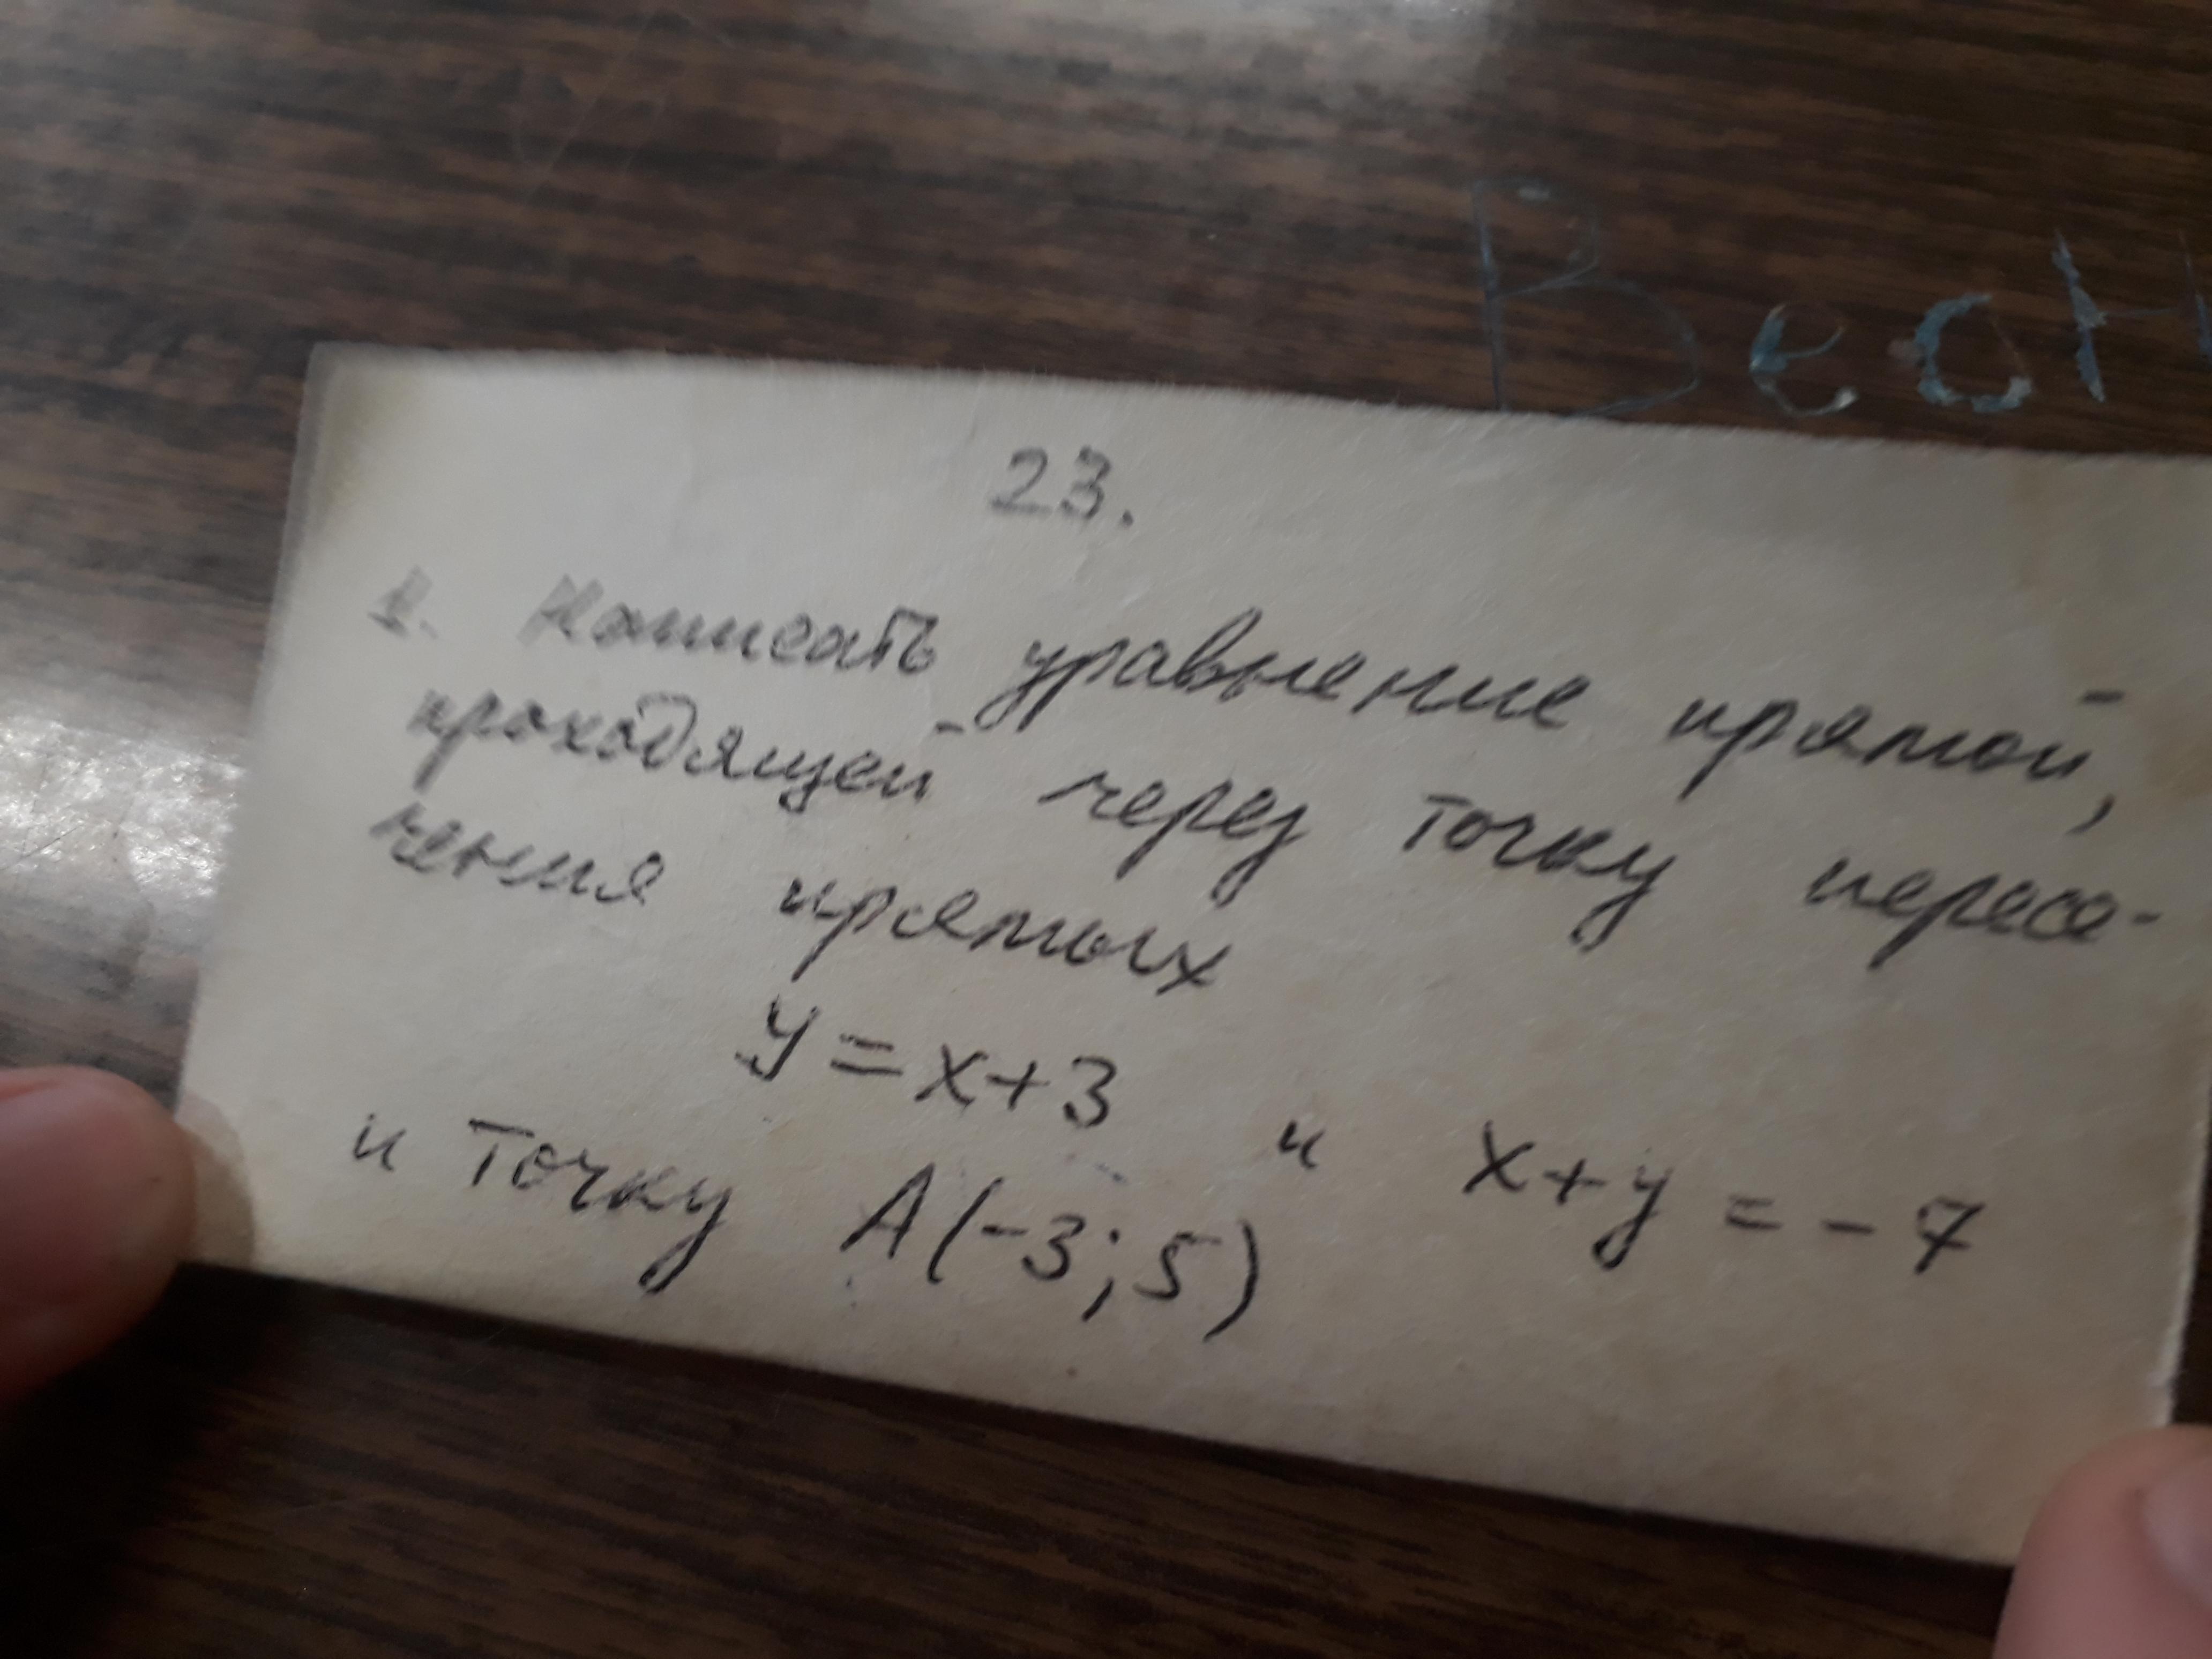 Веан
23.
1. Написать уравнение прямой,
проходящей через точку пересе-
чения прямых
y = x+3 и x+y = -7
и точку A(-3;5)